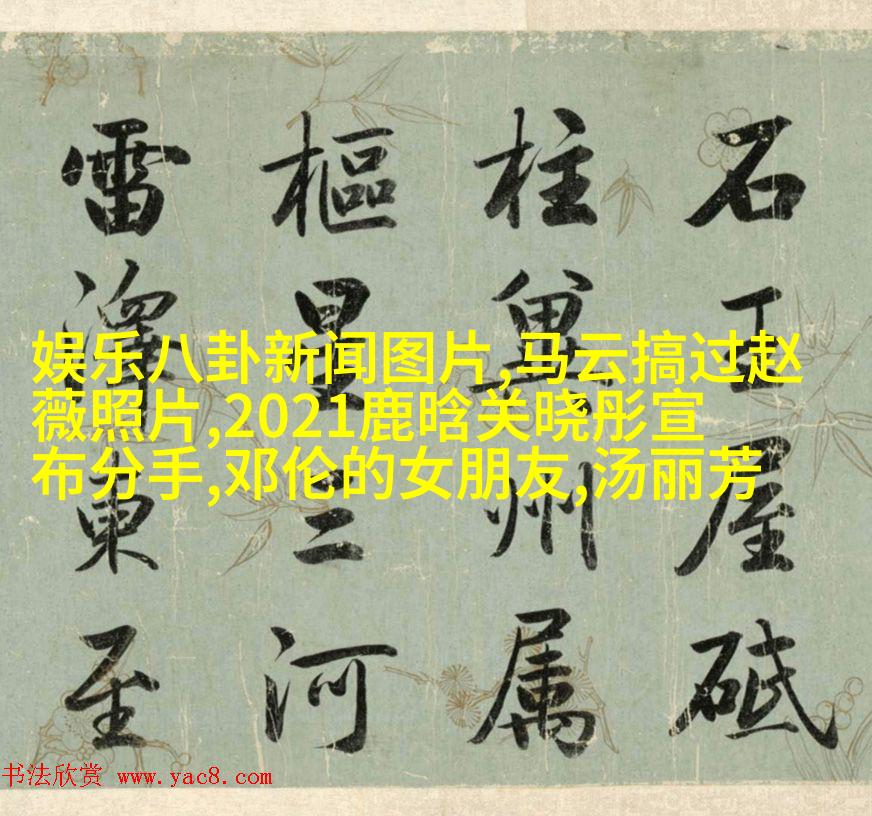 石王屋砥
柱冀州属
樞星三河
雷澤東至
娱乐八卦新闻图片,马云搞过赵
薇照片,2021鹿晗关晓彤宣
布分手,邓伦的女朋友,汤丽芳
书法欣赏 www.yac8.com